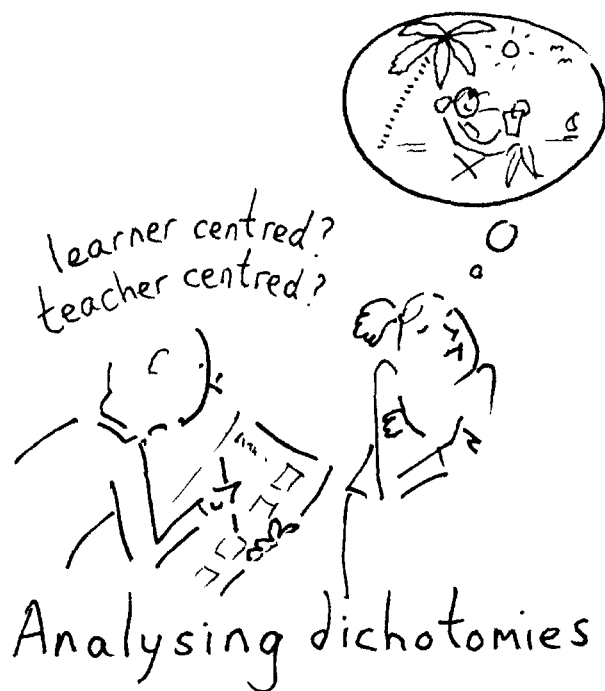 learner centred?
teacher centred?
Analysing dichotomies